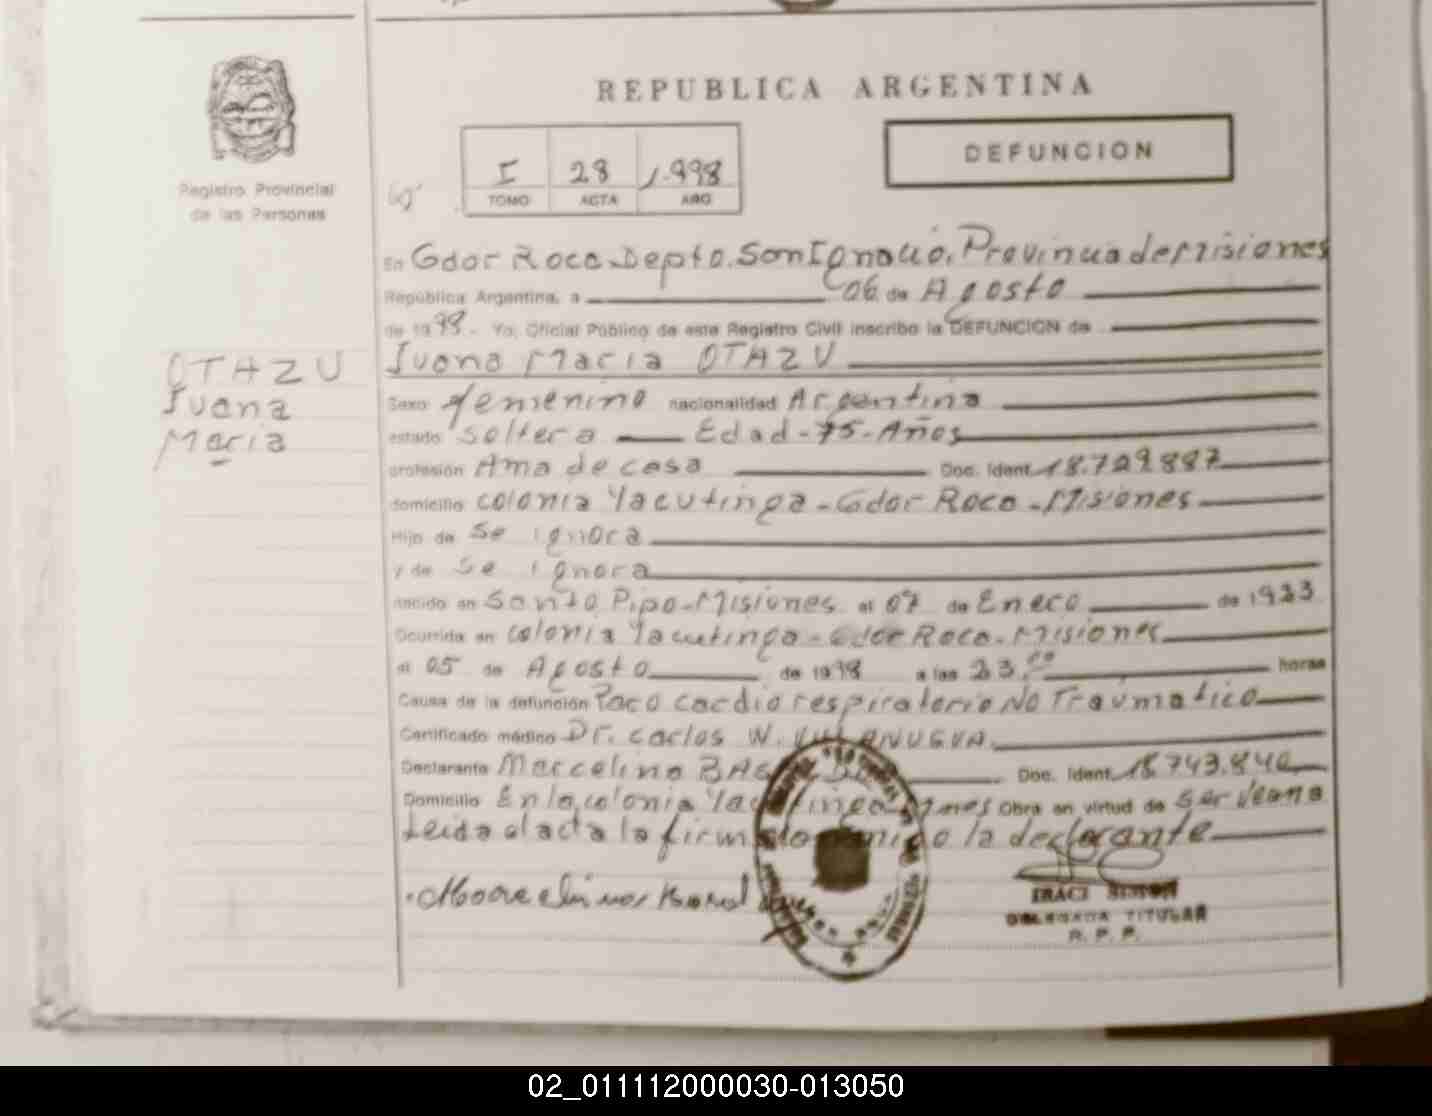 REPUBLICA ARGENTINA
DEFUNCION
I 28 1.998
TOMO ACTA AÑO
Registro Provincial
de las Personas
En Gdor Roca Depto. San Ignacio, Provincia de Misiones
República Argentina, a 06 de Agosto
de 1998.- Yo, Oficial Público de este Registro Civil inscribo la DEFUNCION de
Juana Maria OTAZU
OTAZU
Juana
Maria
Sexo femenino nacionalidad Argentina
estado soltera Edad-75-Años
profesión Ama de casa Doc. Ident. 18.729.887
domicilio colonia Yacutinga-Gdor Roca-Misiones
Hijo de se ignora
y de se ignora
nacido en Santo Pipo-Misiones el 07 de Enero de 1933
Ocurrida en colonia Yacutinga-Gdor Roca-Misiones
el 05 de Agosto de 1998 a las 23.00 horas
Causa de la defunción Paco cardio respiratorio No Traumatico
Certificado médico Dr. Carlos W.
Declarante Marcelina Doc. Ident. 18.743.840
Domicilio En la colonia Obra en virtud de ser
Leida el acta la firma la declarante
IRACI SIMON
DELEGADA TITULAR
R. P. P.
02_011112000030-013050